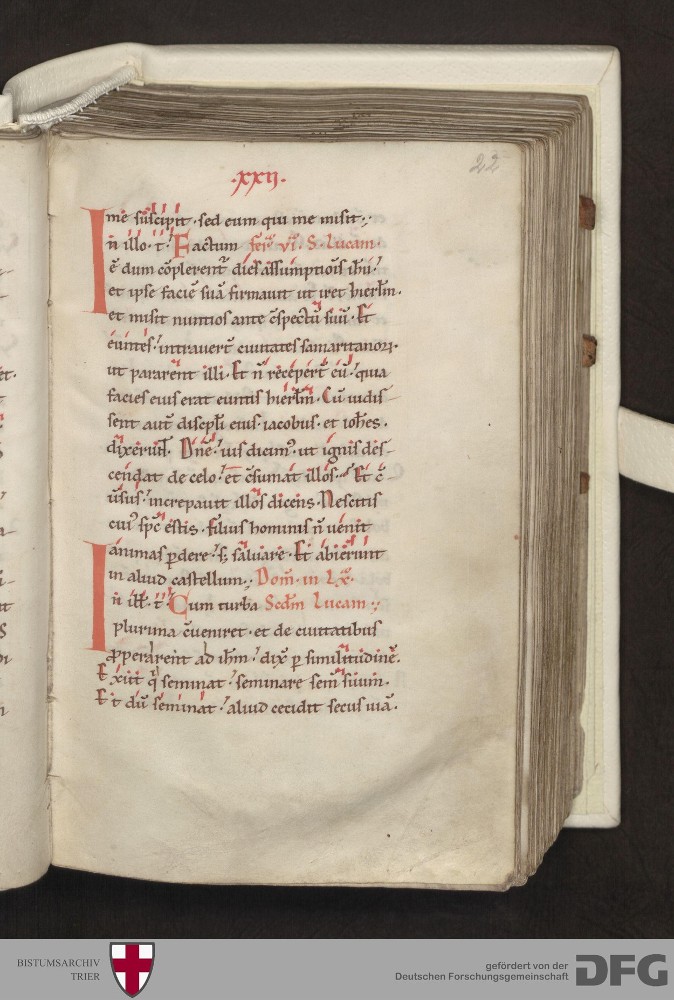 ·xxij·
22
me suscipit · sed eum qui me misit ;
In illo · t̄ · Factum feř vi · S · Lucam ·
ē dum cōplerent᷑ dies assumptiōis ih̄u ·
et ipse faciē suā firmauit ut iret hierl̄m ·
et misit nuntios ante c̄spectū suū · Et
euntes · intrauert̄ ciuitates samaritanoꝝ ·
ut pararent illi · Et n̄ recepert̄ eū · quia
facies eius erat euntis hierl̄m · Cū uidis-
sent aut̄ discipl̄i eius · iacobus · et ioh̄es ·
dixerunt · Dn̄e · uis dicim᷒ · ut ignis des-
cendat de celo · et c̄sumat illos · Et c̄-
uersus · increpauit illos dicens · Nescitis
cui᷒ sp̄c estis · Filius hominis n̄ uenit
animas ꝑdere · s; saluare · Et abierunt
in aliud castellum ; Dom̄ · in Lx̄ ·
In ill̄ · t̄ · Cum turba Scd̄m Lucam ;
plurima c̄ueniret · et de ciuitatibus
ꝓperarent ad ih̄m · dix̄ ꝑ similitudinē ·
Exiit q̇ seminat · seminare sem̄ suum ·
Et dū seminat · aliud cecidit secus uiā ·
BISTUMSARCHIV
TRIER
gefördert von der
Deutschen Forschungsgemeinschaft
DFG